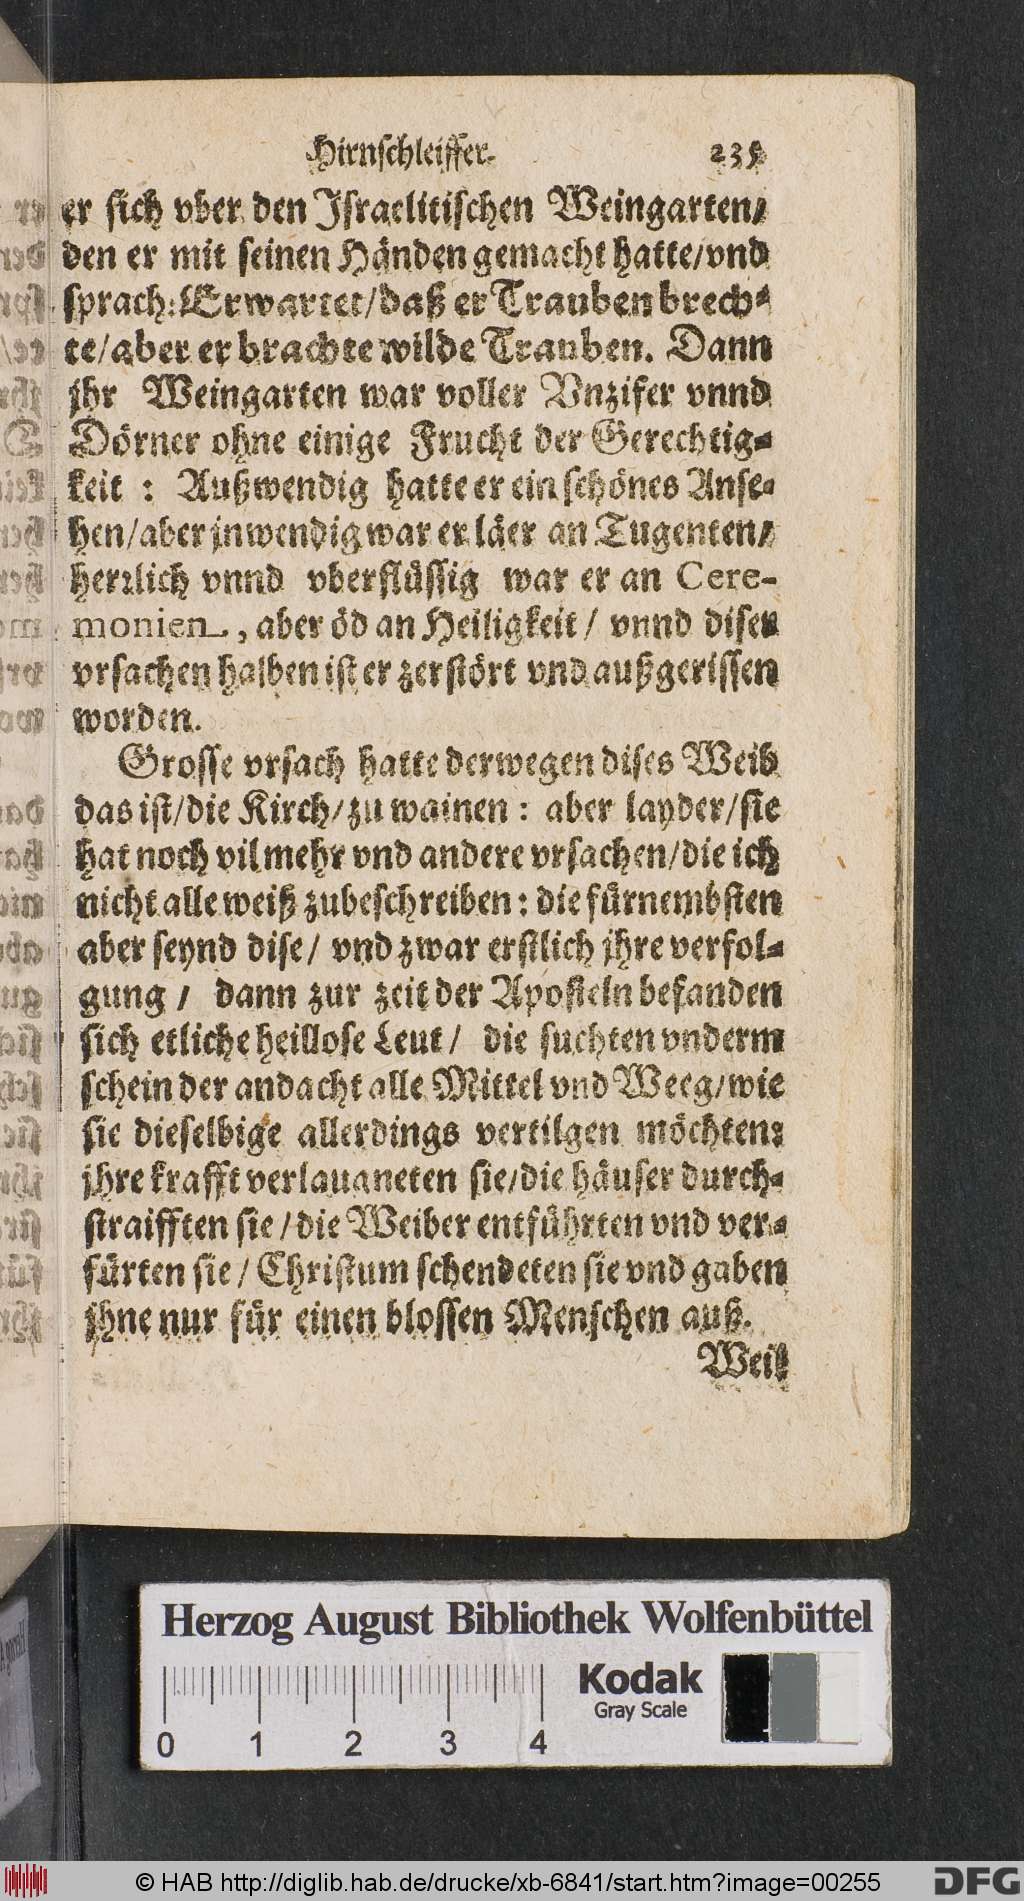 Hirnschleiffer. 235
er sich vber den Israelitischen Weingarten/
den er mit seinen Händen gemacht hatte/vnd
sprach: Erwartet/daß er Trauben brech-
te/aber er brachte wilde Trauben. Dann
jhr Weingarten war voller Vnzifer vnnd
Dörner ohne einige Frucht der Gerechtig-
keit : Außwendig hatte er ein schönes Anse-
hen/aber jnwendig war er läer an Tugenten/
herzlich vnnd vberflüssig war er an Cere-
monien, aber öd an Heiligkeit/ vnnd diser
vrsachen halben ist er zerstört vnd außgerissen
worden.
Grosse vrsach hatte derwegen dises Weib
das ist/die Kirch/zu wainen : aber layder/sie
hat noch vil mehr vnd andere vrsachen/die ich
nicht alle weiß zubeschreiben : die fürnembsten
aber seynd dise/ vnd zwar erstlich jhre verfol-
gung / dann zur zeit der Aposteln befanden
sich etliche heillose Leut/ die suchten vnderm
schein der andacht alle Mittel vnd Weeg/wie
sie dieselbige allerdings vertilgen möchten:
jhre krafft verlaugneten sie/die häuser durch-
straifften sie/die Weiber entführten vnd ver-
fürten sie/ Christum schendeten sie vnd gaben
jhne nur für einen blossen Menschen auß.
Weil
Herzog August Bibliothek Wolfenbüttel
Kodak
Gray Scale
0 1 2 3 4
© HAB http://diglib.hab.de/drucke/xb-6841/start.htm?image=00255
DFG